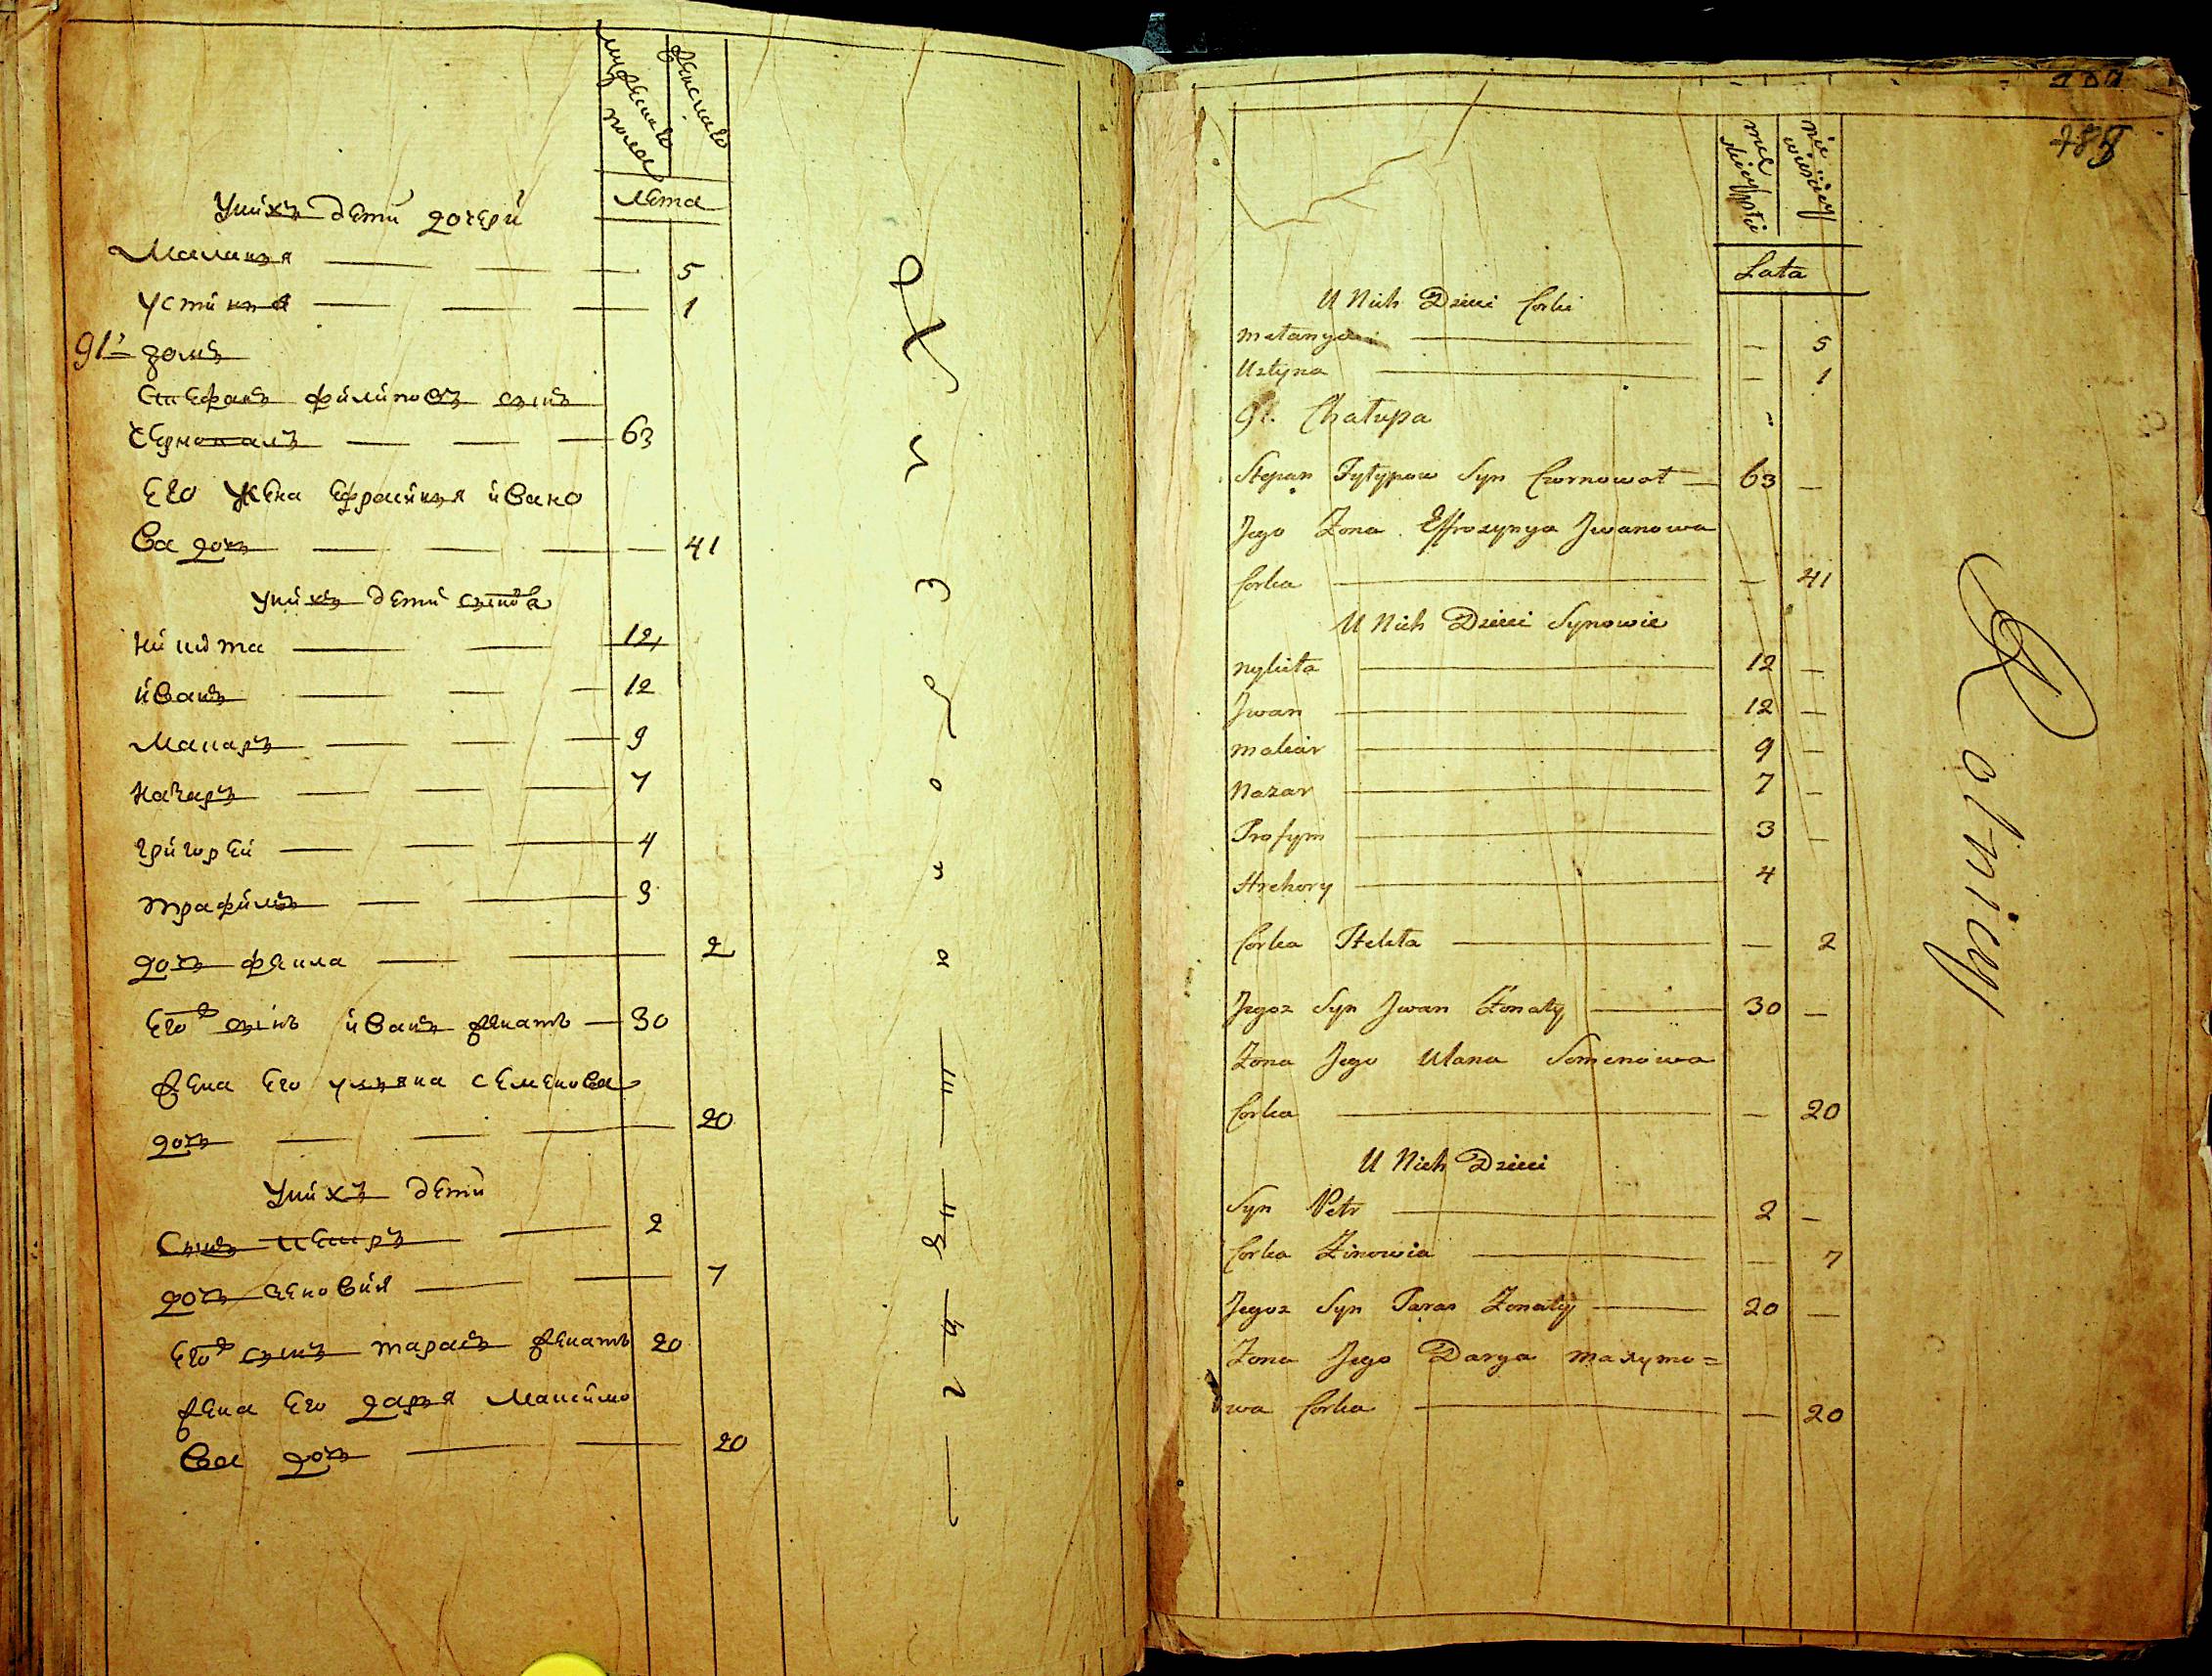 мужеска пола
женска
Лета
У нихъ дети дочери
Маланъя 5
Устинъя 1
91. домъ
Стефанъ филиповъ сынъ
Чернов 63
Его Жена ефросинъя ивано
ва дочъ 41
У нихъ дети сынова
Никита 12
иванъ 12
Макаръ 9
Назаръ 7
григорей 4
трафимъ 3
дочъ фекла 2
Его сынъ иванъ женатъ 30
жена Его улъяна Семенова
дочъ 20
У нихъ дети
Сынъ петръ 2
дочъ зеновия 7
Его сынъ тарасъ женатъ 20
жена Его даръя Максимо
ва дочъ 20
męskiey płci
niewiesciey
Lata
U Nich Dzieci Corki
Małanya — 5
Ustyna — 1
91. Chałupa
Stepan Fyłypow Syn Czornowoł 63 —
Jego Zona Effrozynya Jwanowa
Corka — 41
U Nich Dzieci Synowie
Nykita 12 —
Jwan 12 —
Makar 9 —
Nazar 7 —
Trofym 3 —
Hrehory 4
Corka Tekla — 2
Jegoz Syn Jwan Zonaty 30 —
Zona Jego Ulana Semenowa
Corka — 20
U Nich Dzieci
Syn Petr 2 —
Corka Zinowia — 7
Jegoz Syn Taras Zonaty 20 —
Zona Jego Darya Maxymo=
wa Corka — 20
Rolnicy